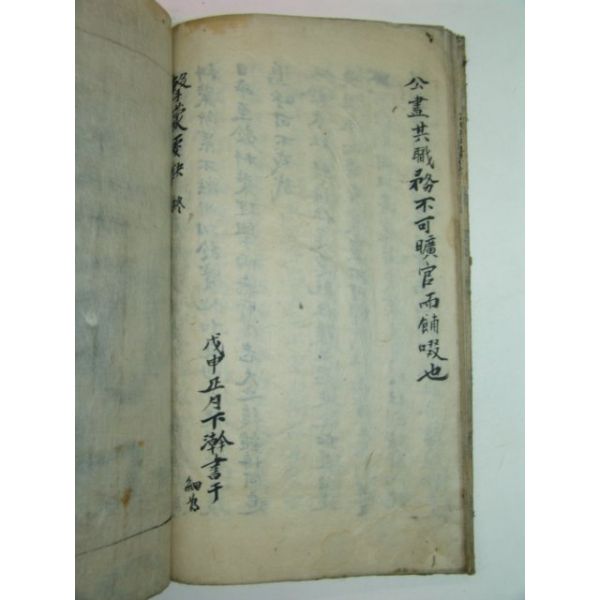 公盡其職務不可曠官而餔啜也
擊蒙要訣 終
戊申正月下澣書于